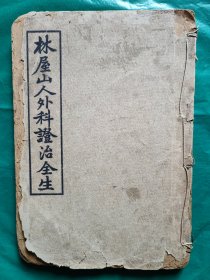 林屋山人外科證治全生